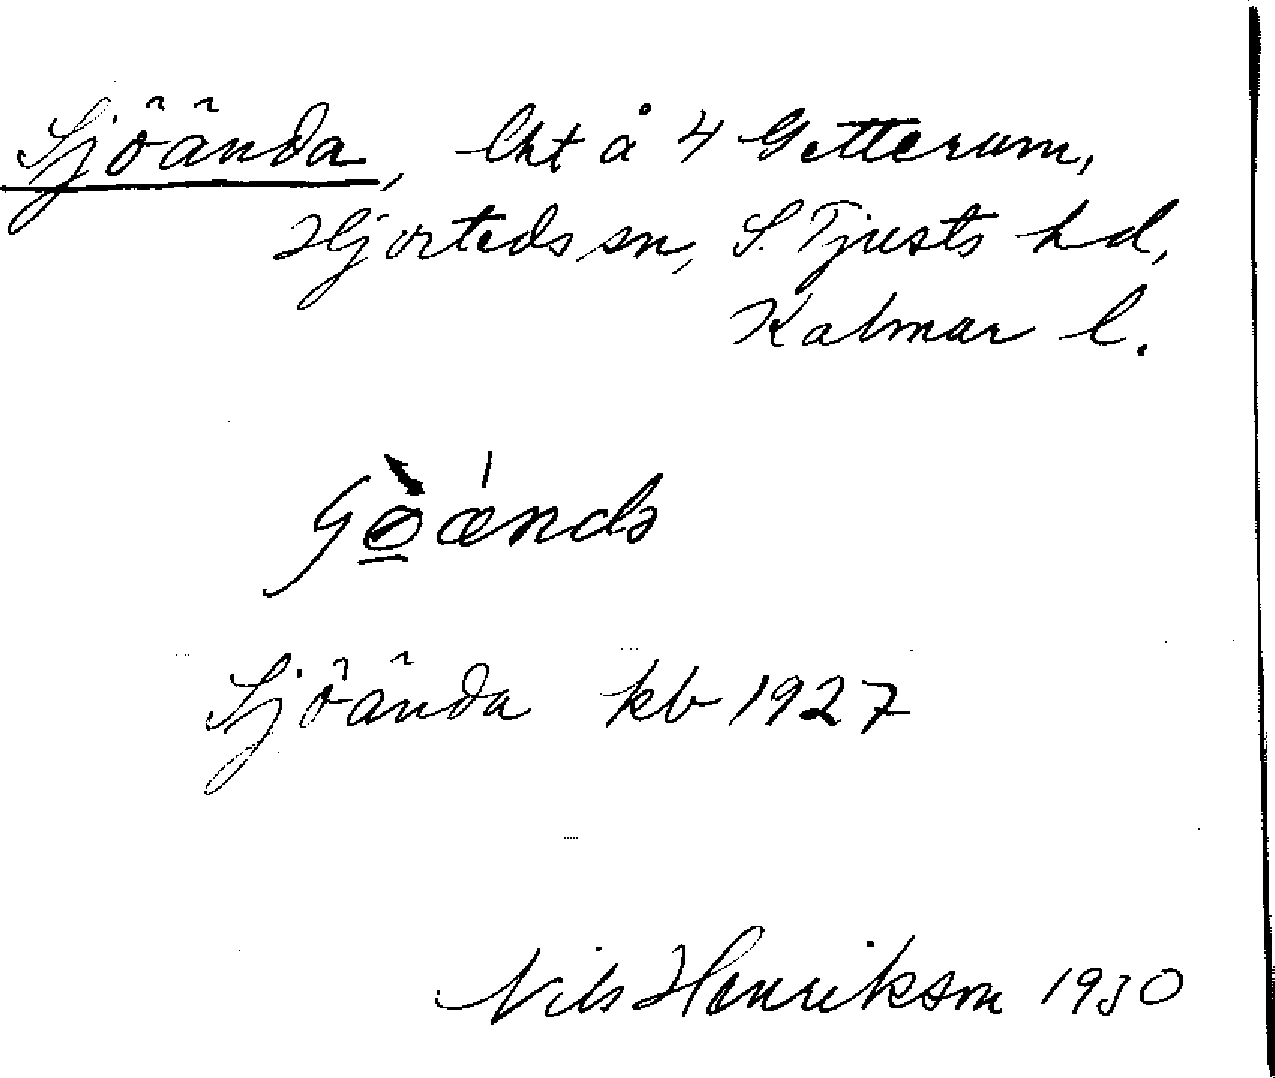 Sjöända, lht å 4 Getterum,
Hjorteds sn, S. Tjusts hd,
Kalmar l.
Sjöända kb 1927
Nils Henrikson 1930